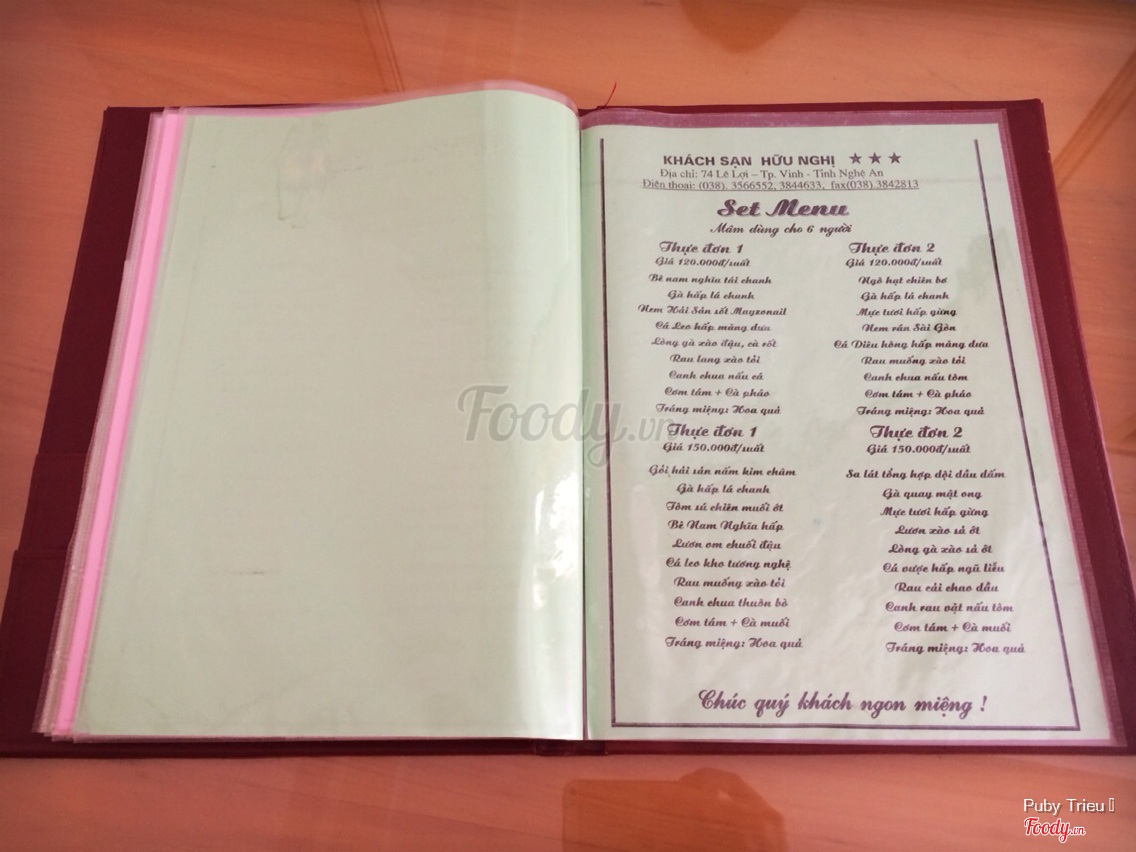 KHÁCH SẠN HỮU NGHỊ ★ ★ ★
Địa chỉ: 74 Lê Lợi – Tp. Vinh - Tỉnh Nghệ An
Điện thoại: (038). 3566552, 3844633, fax(038).3842813
Set Menu
Mâm dùng cho 6 người
Thực đơn 1
Giá 120.000đ/suất
Bê nam nghĩa tái chanh
Gà hấp lá chanh
Nem Hải Sản sốt Mayzonail
Cá Leo hấp màng dưa
Lòng gà xào đậu, cà rốt
Rau lang xào tỏi
Canh chua nấu cá
Cơm tám + Cà pháo
Tráng miệng: Hoa quả
Thực đơn 2
Giá 120.000đ/suất
Ngô hạt chiên bơ
Gà hấp lá chanh
Mực tươi hấp gừng
Nem rán Sài Gòn
Cá Diêu hồng hấp màng dưa
Rau muống xào tỏi
Canh chua nấu tôm
Cơm tám + Cà pháo
Tráng miệng: Hoa quả
Thực đơn 1
Giá 150.000đ/suất
Gỏi hải sản nấm kim châm
Gà hấp lá chanh
Tôm sú chiên muối ớt
Bê Nam Nghĩa hấp
Lươn om chuối đậu
Cá leo kho tương nghệ
Rau muống xào tỏi
Canh chua thuôn bò
Cơm tám + Cà muối
Tráng miệng: Hoa quả
Thực đơn 2
Giá 150.000đ/suất
Sa lát tổng hợp dội dầu dấm
Gà quay mật ong
Mực tươi hấp gừng
Lươn xào sả ớt
Lòng gà xào sả ớt
Cá vược hấp ngũ liễu
Rau cải chao dầu
Canh rau vặt nấu tôm
Cơm tám + Cà muối
Tráng miệng: Hoa quả
Chúc quý khách ngon miệng !
Foody.vn
Puby Trieu
Foody.vn